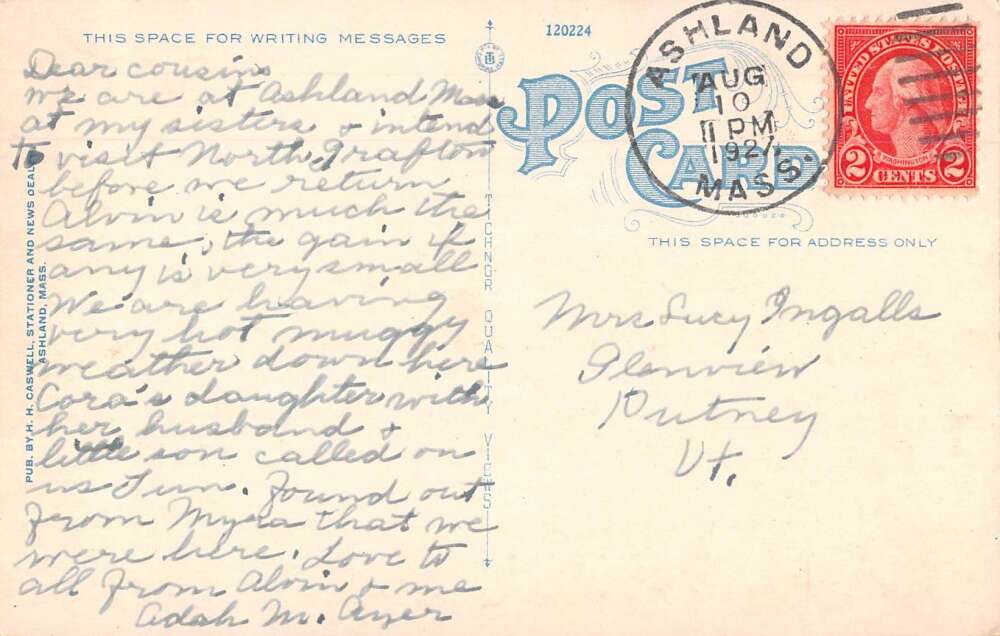 THIS SPACE FOR WRITING MESSAGES
Dear cousins
We are at Ashland Mass
at my sisters & intend
to visit North Grafton
before we return
Alvin is much the
same, the gain if
any is very small
We are having
very hot muggy
weather down here
Cora's daughter with
her husband &
little son called on
us Sun. Found out
from Myra that we
were here. Love to
all from Alvin & me
Adah M. Ayer
PUB. BY H. H. CASWELL, STATIONER AND NEWS DEALER
ASHLAND, MASS.
TICHNOR QUALITY VIEWS
120224
POST CARD
ASHLAND
AUG
10
11 PM
1927
MASS.
UNITED STATES POSTAGE
WASHINGTON
2 CENTS 2
THIS SPACE FOR ADDRESS ONLY
Mrs Lucy Ingalls
Glenview
Putney
Vt.